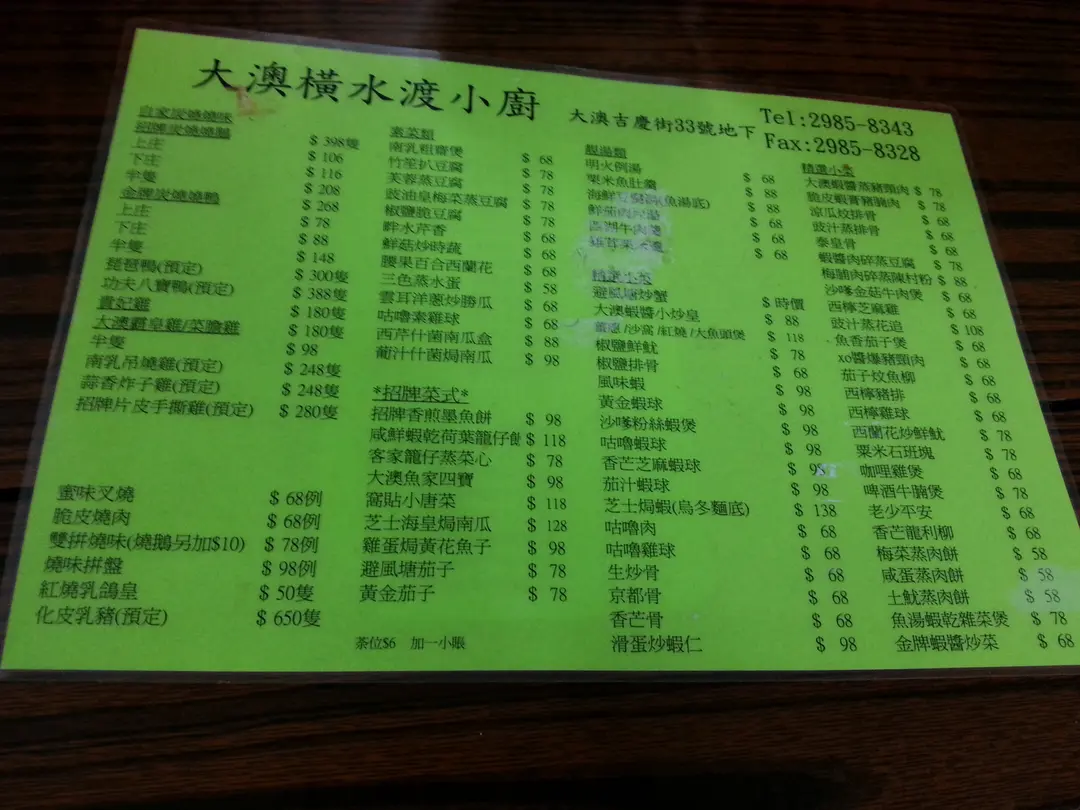 大澳橫水渡小廚
大澳吉慶街33號地下
Tel:2985-8343
Fax:2985-8328
自家炭燒燒味
招牌炭燒燒鵝 $ 398隻
上庄 $ 106
下庄 $ 116
半隻 $ 208
金牌炭燒燒鴨 $ 268
上庄 $ 78
下庄 $ 88
半隻 $ 148
琵琶鴨(預定) $ 300隻
功夫八寶鴨(預定) $ 388隻
貴妃雞 $ 180隻
大澳霸皇雞/菜膽雞 $ 180隻
半隻 $ 98
南乳吊燒雞(預定) $ 248隻
蒜香炸子雞(預定) $ 248隻
招牌片皮手撕雞(預定) $ 280隻
蜜味叉燒 $ 68例
脆皮燒肉 $ 68例
雙拼燒味(燒鵝另加$10) $ 78例
燒味拼盤 $ 98例
紅燒乳鴿皇 $ 50隻
化皮乳豬(預定) $ 650隻
素菜類
南乳粗齋煲 $ 68
竹笙扒豆腐 $ 78
芙蓉蒸豆腐 $ 78
豉油皇梅菜蒸豆腐 $ 78
椒鹽脆豆腐 $ 78
畔水芹香 $ 68
鮮菇炒時蔬 $ 68
腰果百合西蘭花 $ 68
三色蒸水蛋 $ 58
雲耳洋蔥炒勝瓜 $ 68
咕嚕素雞球 $ 68
西芹什菌南瓜盒 $ 88
葡汁什菌焗南瓜 $ 98
*招牌菜式*
招牌香煎墨魚餅 $ 98
咸鮮蝦乾荷葉籠仔飯 $ 118
客家籠仔蒸菜心 $ 78
大澳魚家四寶 $ 98
窩貼小唐菜 $ 118
芝士海皇焗南瓜 $ 128
雞蛋焗黃花魚子 $ 98
避風塘茄子 $ 78
黃金茄子 $ 78
茶位$6 加一小賬
靚湯類
明火例湯 $ 68
粟米魚肚羹 $ 88
海鮮豆腐羹(魚湯底) $ 88
$ 68
西湖牛肉羹 $ 68
雞茸粟米羹 $ 68
精選小菜
避風塘炒蟹 $ 時價
大澳蝦醬小炒皇 $ 88
/沙窩/紅燒/大魚頭煲 $ 118
椒鹽鮮魷 $ 78
椒鹽排骨 $ 68
風味蝦 $ 98
黃金蝦球 $ 98
沙嗲粉絲蝦煲 $ 98
咕嚕蝦球 $ 98
香芒芝麻蝦球 $ 98
茄汁蝦球 $ 98
芝士焗蝦(烏冬麵底) $ 138
咕嚕肉 $ 68
咕嚕雞球 $ 68
生炒骨 $ 68
京都骨 $ 68
香芒骨 $ 68
滑蛋炒蝦仁 $ 98
精選小菜
大澳蝦醬蒸豬頸肉 $ 78
脆皮蝦膏豬腩肉 $ 78
涼瓜炆排骨 $ 68
豉汁蒸排骨 $ 68
泰皇骨 $ 68
蝦醬肉碎蒸豆腐 $ 78
梅腩肉碎蒸陳村粉 $ 88
沙嗲金菇牛肉煲 $ 68
西檸芝麻雞 $ 68
豉汁蒸花追 $ 108
魚香茄子煲 $ 68
xo醬爆豬頸肉 $ 68
茄子炆魚柳 $ 68
西檸豬排 $ 68
西檸雞球 $ 68
西蘭花炒鮮魷 $ 78
粟米石班塊 $ 78
咖哩雞煲 $ 68
啤酒牛腩煲 $ 78
老少平安 $ 68
香芒龍利柳 $ 68
梅菜蒸肉餅 $ 58
咸蛋蒸肉餅 $ 58
土魷蒸肉餅 $ 58
魚湯蝦乾雜菜煲 $ 78
金牌蝦醬炒菜 $ 68